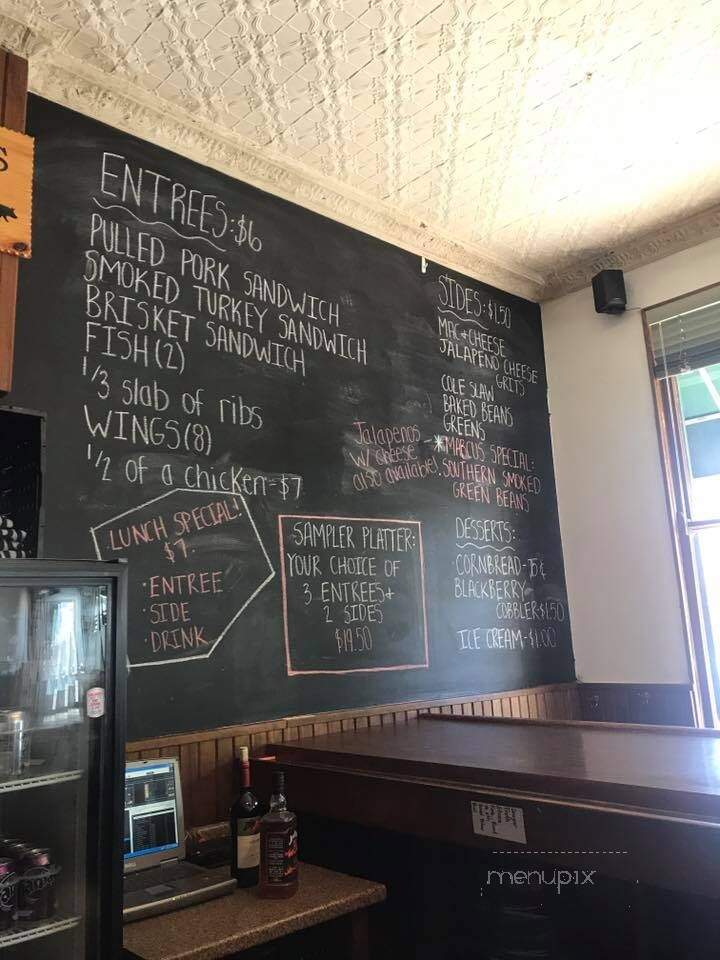 ENTREES: $6
PULLED PORK SANDWICH
SMOKED TURKEY SANDWICH
BRISKET SANDWICH
FISH (2)
1/3 slab of ribs
WINGS (8)
1/2 of a chicken-$7
LUNCH SPECIAL!
$7
·ENTREE
·SIDE
·DRINK
SAMPLER PLATTER:
YOUR CHOICE OF
3 ENTREES+
2 SIDES
$19.50
SIDES: $1.50
MAC+CHEESE
JALAPENO CHEESE
GRITS
COLE SLAW
BAKED BEANS
GREENS
*MARCUS SPECIAL:
SOUTHERN SMOKED
GREEN BEANS
Jalapenos
w/ cheese
also available!
DESSERTS:
CORNBREAD-75¢
BLACKBERRY
COBBLER $1.50
ICE CREAM-$1.00
menupix